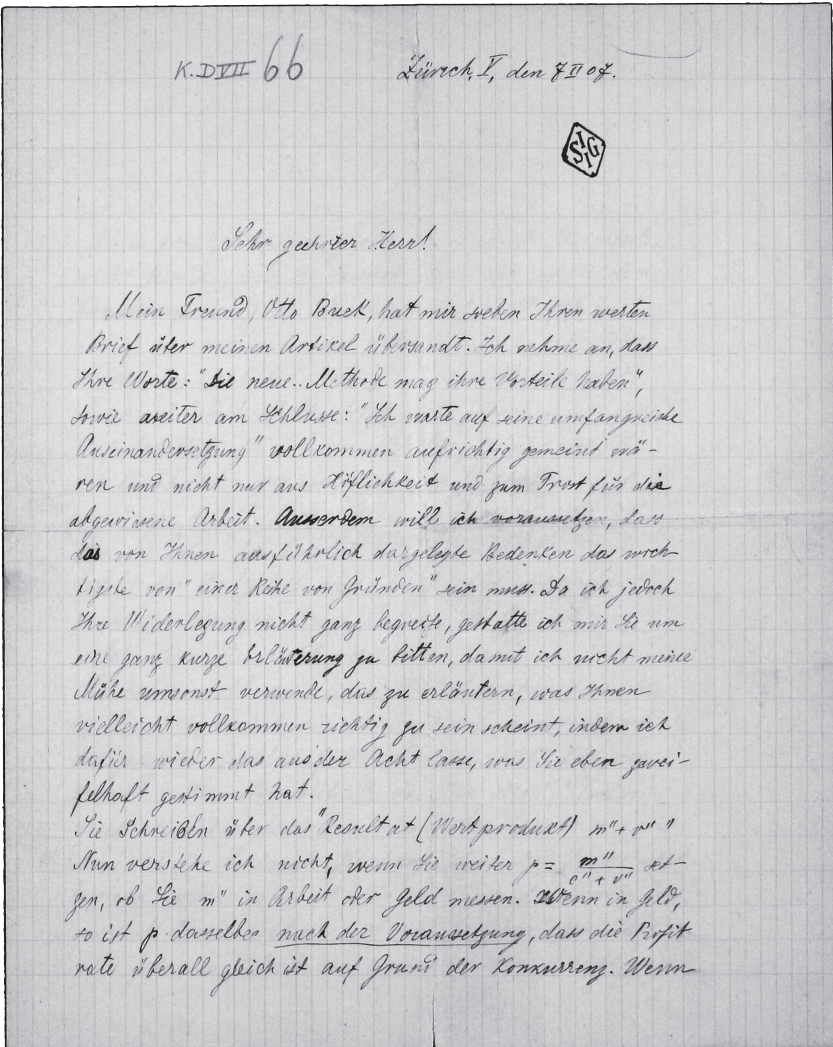 K. D VII 66
Zürich, V, den 7 II 07.
IISG
Sehr geehrter Herr!
Mein Freund, Otto Buek, hat mir soeben Ihren werten
Brief über meinen Artikel übersandt. Ich nehme an, dass
Ihre Worte: "Die neue.. Methode mag ihre Vorteile haben",
sowie weiter am Schlusse: "Ich warte auf seine umfangreiche
Auseinandersetzung" vollkommen aufrichtig gemeint wä-
ren und nicht nur aus Höflichkeit und zum Trost für die
abgewiesene Arbeit. Ausserdem will ich voraussetzen, dass
das von Ihnen ausführlich dargelegte Bedenken das wich-
tigste von "einer Reihe von Gründen" sein muss. Da ich jedoch
Ihre Widerlegung nicht ganz begreife, gestatte ich mir Sie um
eine ganz kurze Erläuterung zu bitten, damit ich nicht meine
Mühe umsonst verwende, das zu erläutern, was Ihnen
vielleicht vollkommen richtig zu sein scheint, indem ich
dafür wieder das aus der Acht lasse, was Sie eben zwei-
felhaft gestimmt hat.
Sie Schreiben über das "Resultat (Wertprodukt) m" + v" "
Nun verstehe ich nicht, wenn Sie weiter p = m"/(c" + v") set-
zen, ob Sie m" in Arbeit oder Geld messen. Wenn in Geld,
so ist p dasselbe nach der Voraussetzung, dass die Profit
rate überall gleich ist auf Grund der Konkurrenz. Wenn